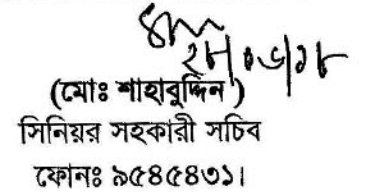 ২৮/০৬/১৮
(মোঃ শাহাবুদ্দিন)
সিনিয়র সহকারী সচিব
ফোনঃ ৯৫৪৫৪৩১।